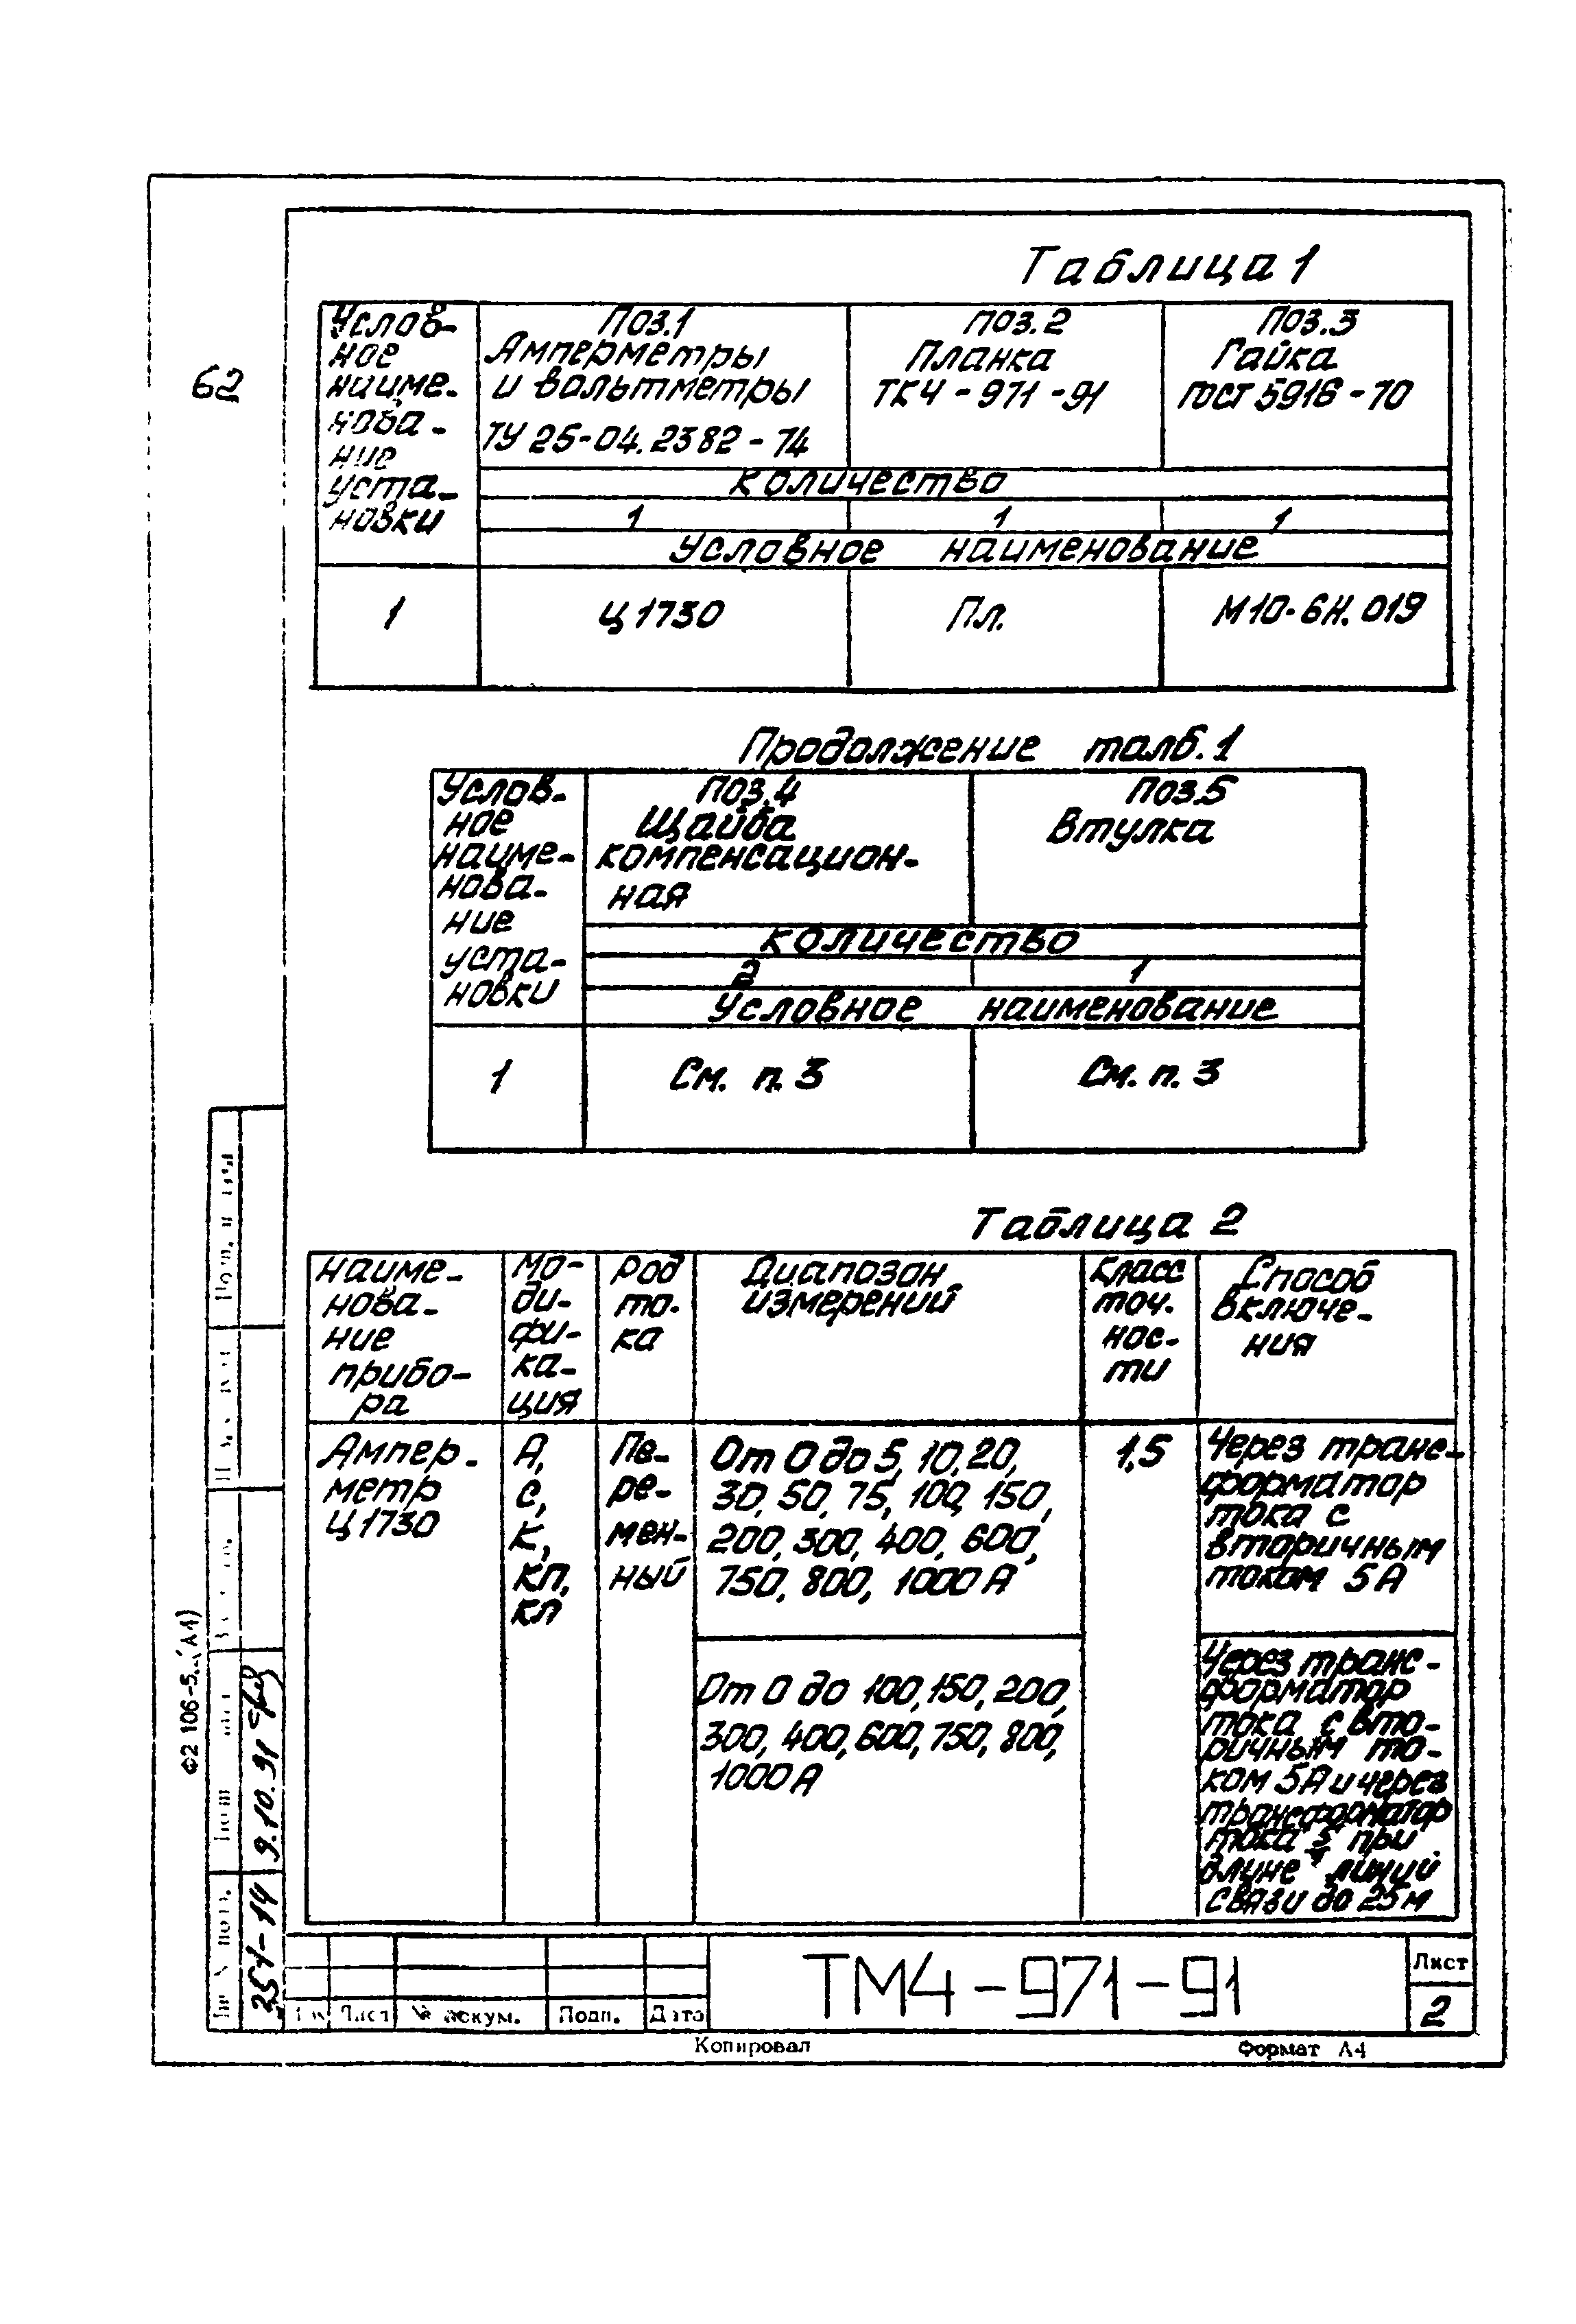 62
Таблица 1
Услов-
ное
наиме-
нова-
ние
уста-
новки
Поз.1
Амперметры
и вольтметры
ТУ 25-04.2382-74
поз.2
Планка
ТК4-971-91
Поз.3
Гайка
ГОСТ 5916-70
количество
1 1 1
Условное наименование
1 Ц1730 Пл. М10-6Н.019
Продолжение талб.1
Услов-
ное
наиме-
нова-
ние
уста-
новки
Поз.4
Щайба
компенсацион-
ная
Поз.5
Втулка
количество
2 1
Условное наименование
1 См. п. 3 См. п. 3
Таблица 2
Наиме-
нова-
ние
прибо-
ра
Мо-
ди-
фи-
ка-
ция
Род
то-
ка
Диапозон
измерений
Класс
точ.
нос-
ти
Способ
включе-
ния
Ампер-
метр
Ц1730
А,
С,
К,
КП,
КЛ
Пе-
ре-
мен-
ный
От 0 до 5, 10, 20,
30, 50, 75, 100, 150,
200, 300, 400, 600,
750, 800, 1000 А
1,5
Через транс-
форматор
тока с
вторичным
током 5А
От 0 до 100, 150, 200,
300, 400, 600, 750, 800,
1000 А
Через транс-
форматор
тока с вто-
ричным то-
ком 5А и через
трансформатор
тока при
длине линии
связи до 25м
Ф2 106-5..(А4)
9.10.91
354-14
Лист № докум. Подп. Дата
ТМ4-971-91
Лист
2
Копировал
Формат А4